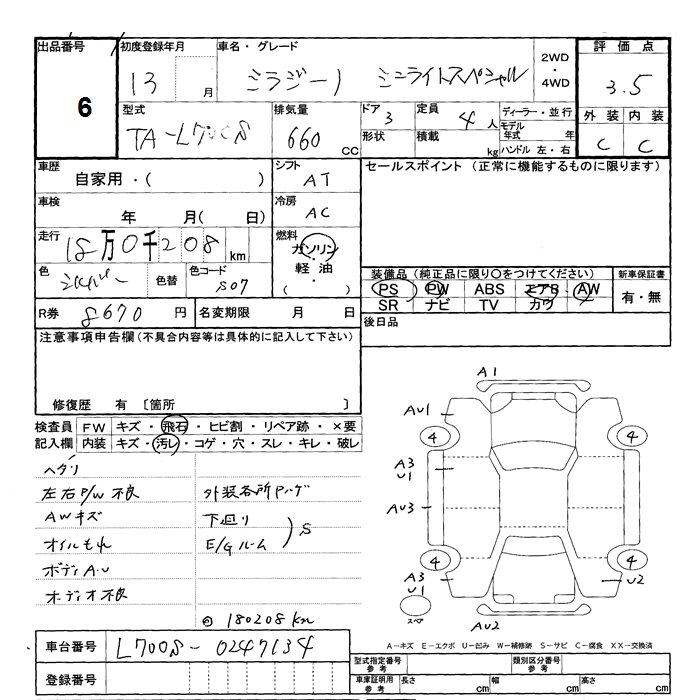 出品番号 初度登録年月 車名・グレード 2WD・4WD 評価点
6 13 月 ミラジーノ ミニライトスペシャル 3.5
型式 排気量 ドア 定員 ディーラー・並行 外装 内装
TA-L700S 660 CC 3 4 人 モデル年式 年 C C
形状 積載 kg ハンドル 左・右
車歴 シフト セールスポイント (正常に機能するものに限ります)
自家用・( ) AT
車検 冷房
年 月( 日) AC
走行 燃料
18万0千208 km ガソリン
軽油
・( )
色 色替 色コード 装備品 (純正品に限り〇をつけてください) 新車保証書
シルバー S07 PS PW ABS エアB AW 有・無
SR ナビ TV カワ
R券 8670 円 名変期限 月 日 後日品
注意事項申告欄(不具合内容等は具体的に記入して下さい)
修復歴 有 〔箇所 〕
検査員 FW キズ・飛石・ヒビ割・リペア跡・×要
記入欄 内装 キズ・汚レ・コゲ・穴・スレ・キレ・破レ
ヘタリ
左右P/W不良 外装各所Pハゲ
AWキズ 下廻り
オイルもれ E/Gルーム S
ボディA.U
オーディオ不良
180208km
A1
AU1
4 4
A3
U1
AU3
4 4
A3
U1
U2
スペア
AU2
A-キズ E-エクボ U-凹み W-補修跡 S-サビ C-腐食 XX-交換済
車台番号 L700S-0247134
登録番号
型式指定番号 参考 類別区分番号 参考
車庫証明用 参考 長さ cm 幅 cm 高さ cm